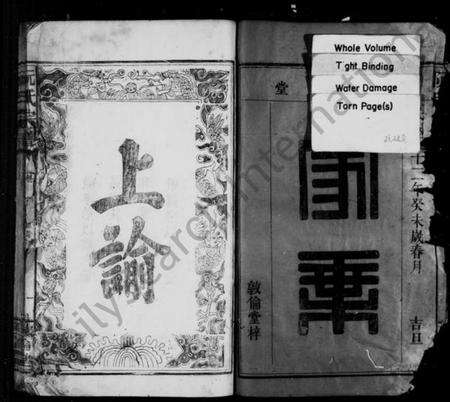 Whole Volume
Tight Binding
Water Damage
Torn Page(s)
十二年癸未歲春月 吉旦
家乘
堂
敦倫堂梓
上諭